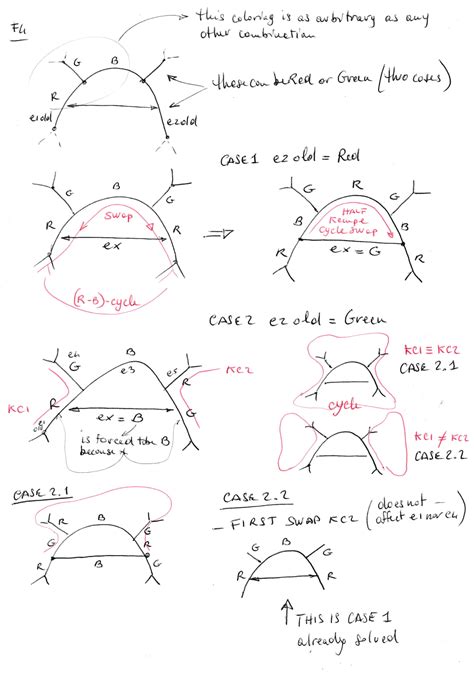 F4
this coloring is as arbitrary as any
other combination
G
B
these can be Red or Green (two cases)
R
e1old
e2old
CASE 1 e2old = Red
R
G
B
G
SWAP
R
R
ex
(R-B)-cycle
⇒
G
B
G
HALF
Kempe
Cycle SWAP
B
B
ex = G
R
R
CASE 2 e2old = Green
e4
G
B
e3
e5
R
R
KC2
KC1
R
G
ex = B
is forced to be B
because x
KC1 ≡ KC2
CASE 2.1
cycle
KC1 ≠ KC2
CASE 2.2
CASE 2.1
R
G
B
G
R
R
B
G
CASE 2.2
- FIRST SWAP KC2 (does not affect e1 nor e4)
G
B
G
R
R
THIS IS CASE 1
already solved